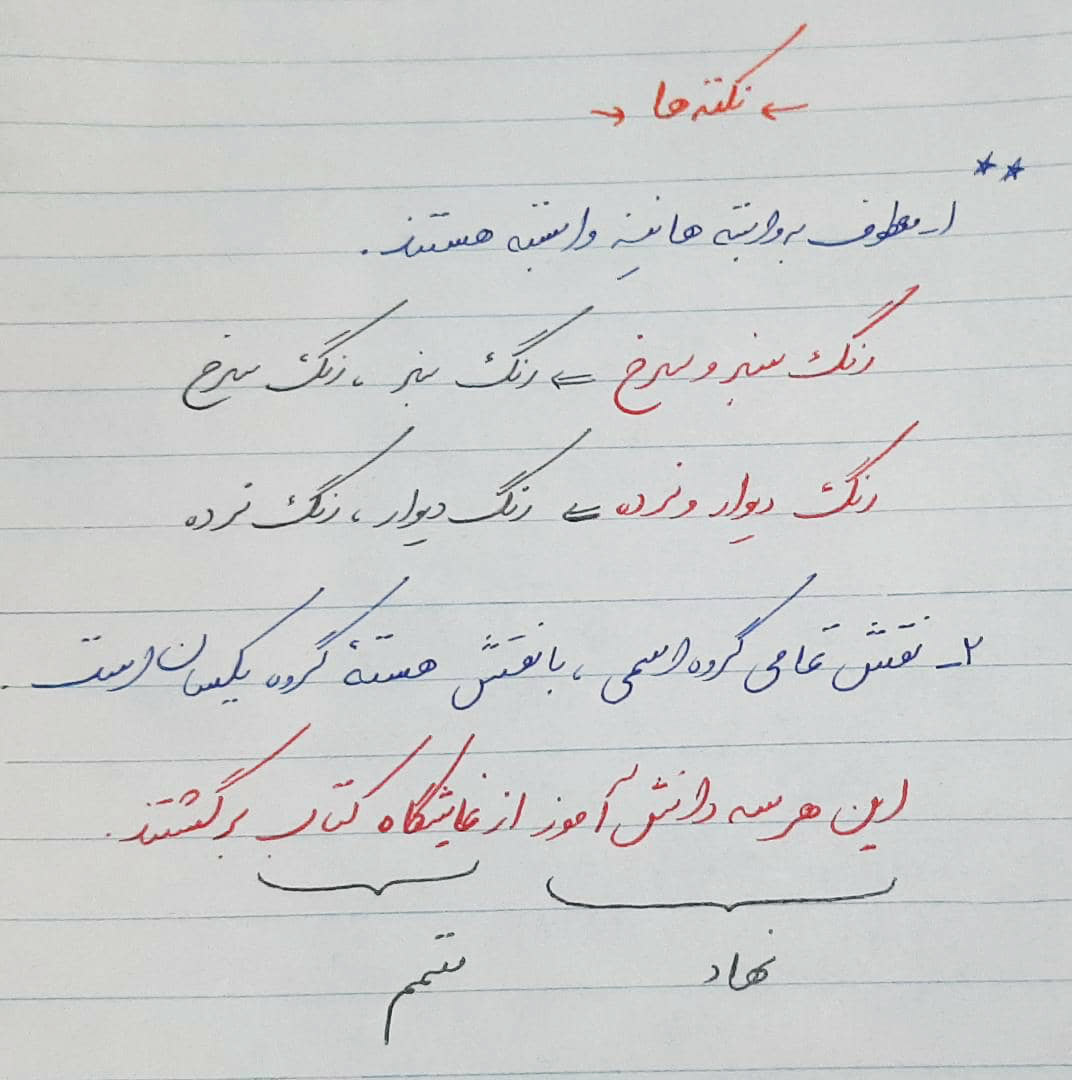 ← نکته‌ها →
** 
۱ـ معطوف به وابسته‌ها نیز وابسته هستند.
رنگ سبز و سرخ ← رنگ سبز، رنگ سرخ
رنگ دیوار و نرده ← رنگ دیوار، رنگ نرده
۲ـ نقش تمامی گروه اسمی، با نقش هستهٔ گروه یکسان است.
این هر سه دانش‌آموز از نمایشگاه کتاب برگشتند.
نهاد متمم